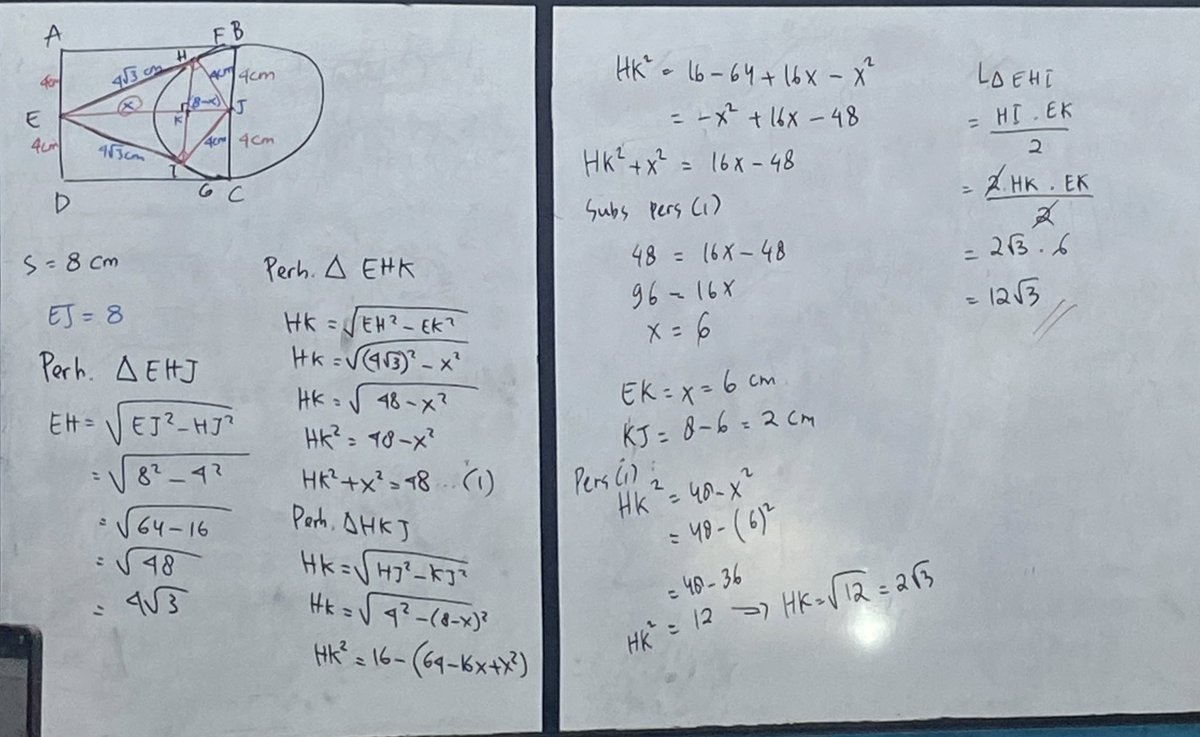 A F B
H
4cm 4√3 cm 4cm 4cm
x (8-x)
E K J
4cm 4√3cm 4cm 4cm
I
D G C
S = 8 cm
EJ = 8
Perh. △ EHJ
EH = √EJ² - HJ²
= √8² - 4²
= √64 - 16
= √48
= 4√3
Perh. △ EHK
HK = √EH² - EK²
HK = √(4√3)² - x²
HK = √48 - x²
HK² = 48 - x²
HK² + x² = 48 ... (1)
Perh. △HKJ
HK = √HJ² - KJ²
HK = √4² - (8-x)²
HK² = 16 - (64 - 16x + x²)
HK² = 16 - 64 + 16x - x²
= -x² + 16x - 48
HK² + x² = 16x - 48
Subs pers (1)
48 = 16x - 48
96 = 16x
x = 6
EK = x = 6 cm
KJ = 8 - 6 = 2 cm
Pers (1) :
HK² = 48 - x²
= 48 - (6)²
= 48 - 36
HK² = 12 → HK = √12 = 2√3
L△ EHI
= HI . EK
2
= 2 . HK . EK
2
= 2√3 . 6
= 12√3